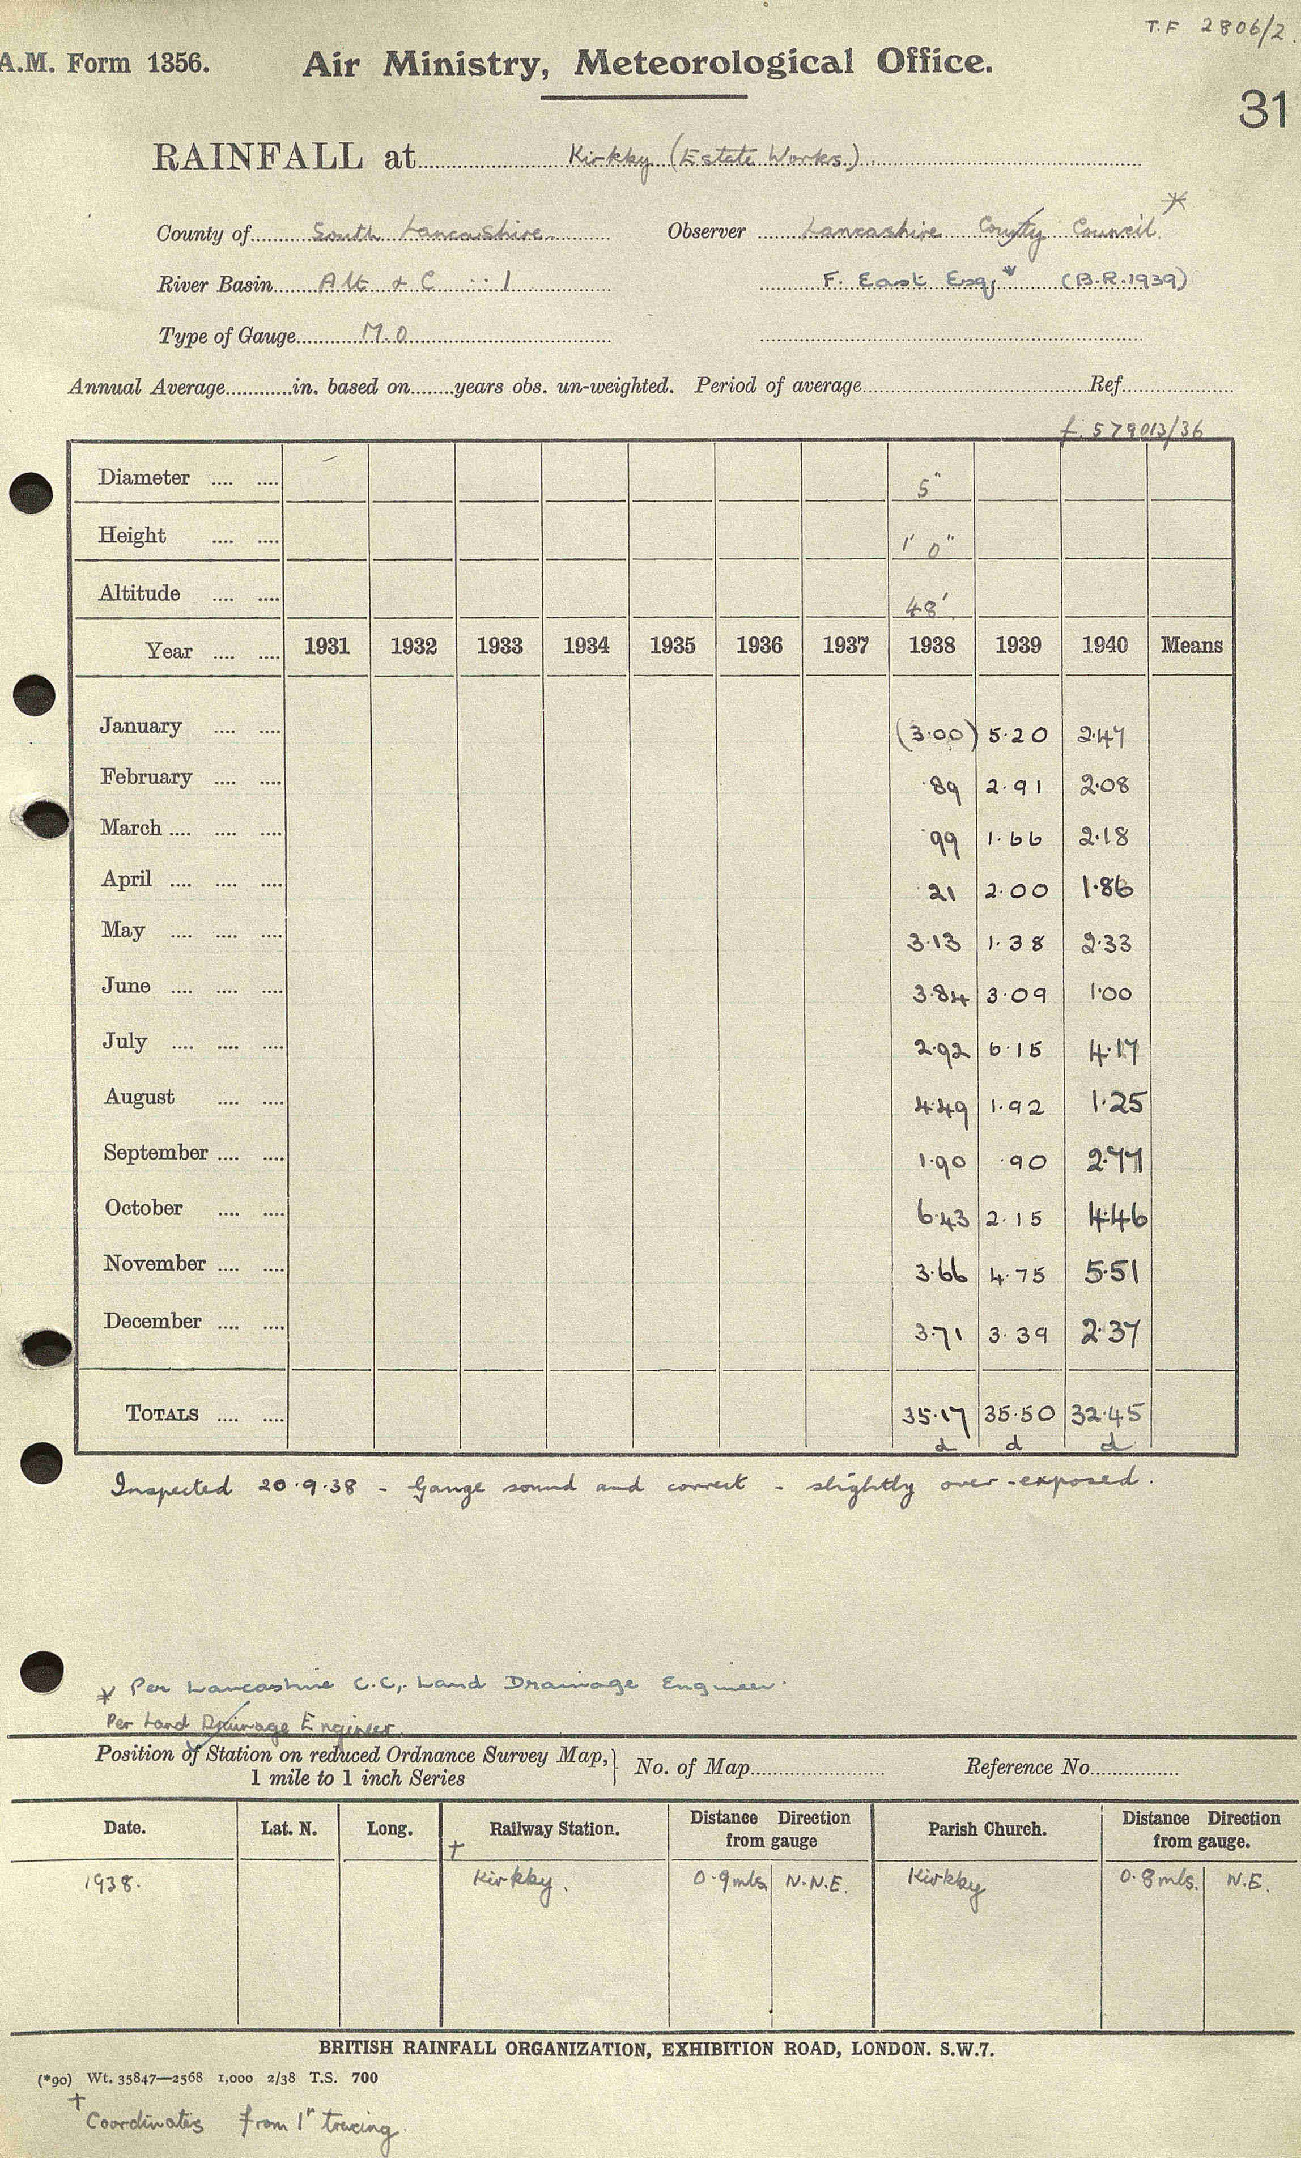 T.F 2806/2.
A.M. Form 1356. Air Ministry, Meteorological Office.
31
RAINFALL at Kirkby (Estate Works.)
County of South Lancashire Observer Lancashire County Council *
River Basin Alt & C 1 F. East Esq * (B.R. 1939)
Type of Gauge M.O
Annual Average............in. based on.......years obs. un-weighted. Period of average............Ref............
f. 579013/36
Diameter .... .... 5"
Height .... .... 1' 0"
Altitude .... .... 48'
Year .... .... 1931 1932 1933 1934 1935 1936 1937 1938 1939 1940 Means
January .... .... (3.00) 5.20 2.47
February .... .... .89 2.91 2.08
March .... .... .... .99 1.66 2.18
April .... .... .... .21 2.00 1.86
May .... .... .... 3.13 1.38 2.33
June .... .... .... 3.84 3.09 1.00
July .... .... .... 2.92 6.15 4.17
August .... .... 4.49 1.92 1.25
September .... .... 1.90 .90 2.77
October .... .... 6.43 2.15 4.46
November .... .... 3.66 4.75 5.51
December .... .... 3.71 3.39 2.37
TOTALS .... .... 35.17 35.50 32.45
d d d
Inspected 20.9.38 - Gauge sound and correct - slightly over-exposed.
* Per Lancashire C.C., Land Drainage Engineer.
Per Land Drainage Engineer.
Position of Station on reduced Ordnance Survey Map, } No. of Map............ Reference No............
1 mile to 1 inch Series
Date. Lat. N. Long. † Railway Station. Distance Direction from gauge Parish Church. Distance Direction from gauge.
1938. Kirkby. 0.9 mls N.N.E. Kirkby 0.8 mls. N.E.
BRITISH RAINFALL ORGANIZATION, EXHIBITION ROAD, LONDON. S.W.7.
(*90) Wt. 35847—2568 1,000 2/38 T.S. 700
† Coordinates from 1" tracing.